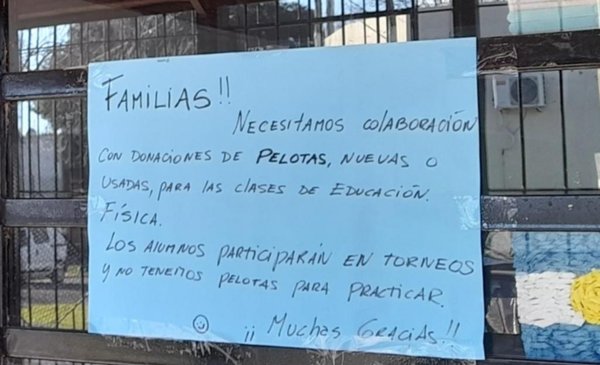 FAMILIAS!!
NECESITAMOS COLABORACIÓN
CON DONACIONES DE PELOTAS, NUEVAS O
USADAS, PARA LAS CLASES DE EDUCACIÓN.
FÍSICA.
LOS ALUMNOS PARTICIPARÁN EN TORNEOS
Y NO TENEMOS PELOTAS PARA PRACTICAR.
¡¡ MUCHAS GRACIAS!!